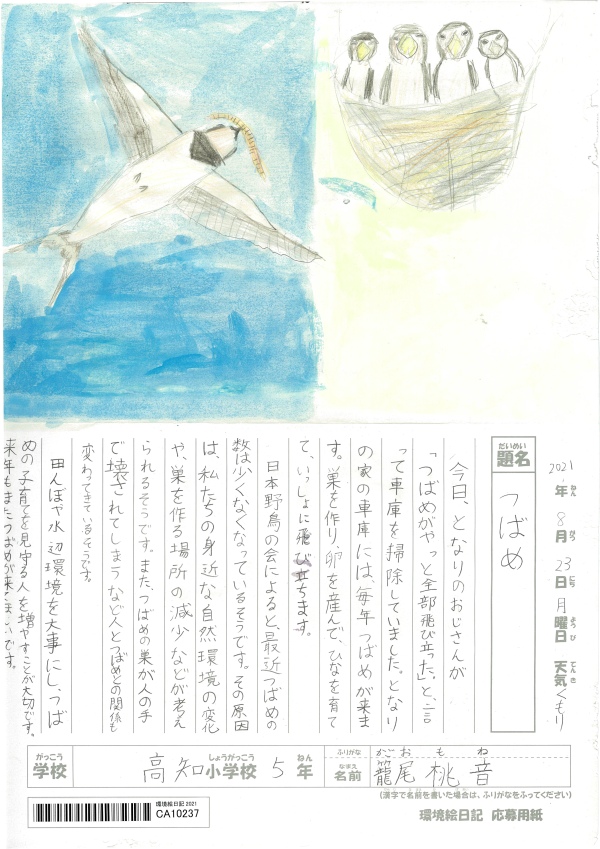 2021年ねん 8月がつ 23日にち 月曜日ようび 天気てんき くもり
題名だいめい つばめ
今日、となりのおじさんが
「つばめがやっと全部飛び立った」と、言
って車庫を掃除していました。となり
の家の車庫には、毎年つばめが来ま
す。巣を作り、卵を産んで、ひなを育て
て、いっしょに飛び立ちます。
日本野鳥の会によると、最近つばめの
数は少なくなっているそうです。その原因
は、私たちの身近な自然環境の変化
や、巣を作る場所の減少などが考え
られるそうです。また、つばめの巣が人の手
で壊されてしまうなど人とつばめとの関係も
変わってきているそうです。
田んぼや水辺環境を大事にし、つば
めの子育てを見守る人を増やすことが大切です。
来年もまたつばめが来てほしいです。
学校がっこう 高知小学校しょうがっこう 5年ねん
ふりがな がお もね
名前なまえ 籠尾 桃音
(漢字で名前を書いた場合は、ふりがなをふってください)
環境絵日記 応募用紙
環境絵日記 2021
CA10237